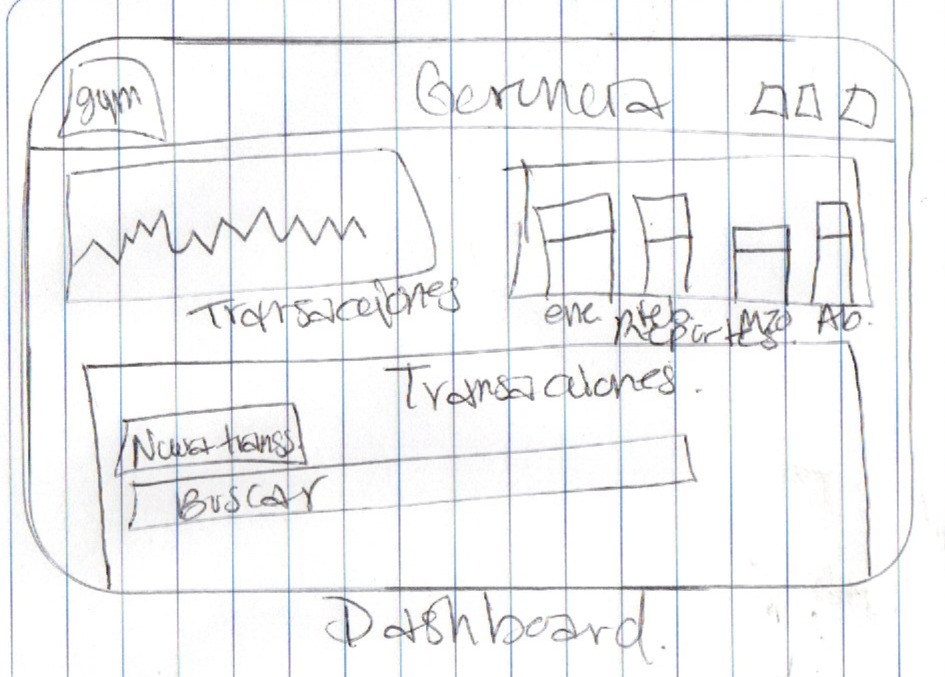 gym
Gerencia
Transacciones
ene. Feb. Mzo Ab.
Reportes.
Transacciones.
Nueva transs.
Buscar
Dashboard.